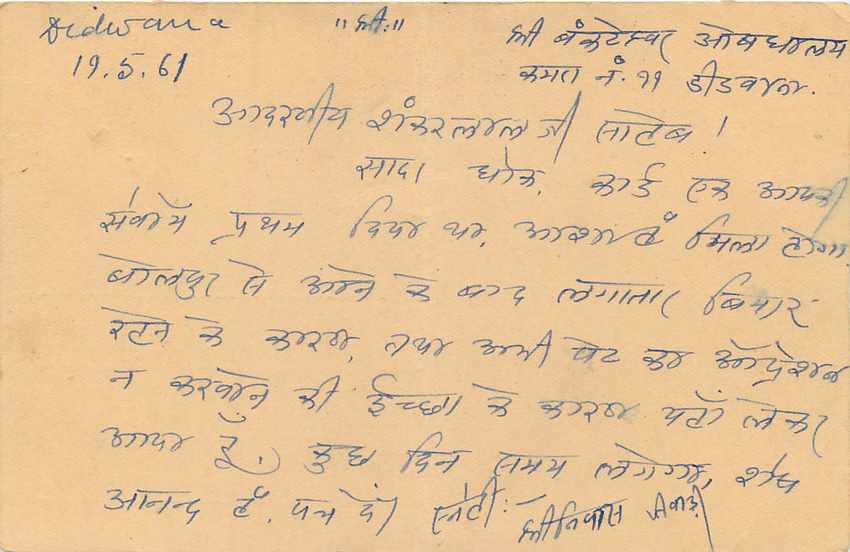 Didwana
19.5.61
"श्रीः"
श्री बंकटेश्वर औषधालय
कमरा नं. ११ डीडवाना.
आदरणीय शंकरलाल जी साहेब !
सादर धोक. कार्ड एक आपकी
सेवामें प्रथम दिया था, आशा है मिला होगा
बोलपुर से आने के बाद लगातार बिमार
रहने के कारण, तथा अभी पेट का ऑप्रेशन
न करवाने की ईच्छा के कारण यहाँ लेकर
आया हूँ. कुछ दिन समय लगेगा, शेष
आनन्द है. पत्र दें। स्नेही:-
श्रीनिवास